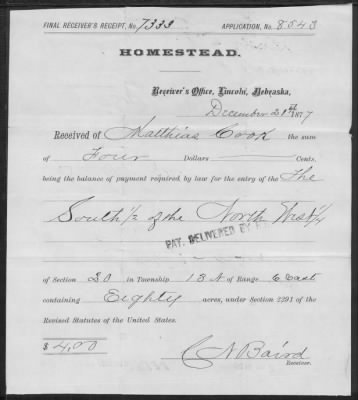 FINAL RECEIVER'S RECEIPT, No. 7333 APPLICATION, No. 8543
HOMESTEAD.
Receiver's Office, Lincoln, Nebraska,
December 21st 1877
Received of Matthias Cook the sum
of Four Dollars Cents,
being the balance of payment required by law for the entry of the The
South 1/2 of the North West 1/4
PAT. DELIVERED BY
of Section 20 in Township 13 N of Range 6 East
containing Eighty acres, under Section 2291 of the
Revised Statutes of the United States.
$ 4,00
C N Baird
Receiver.